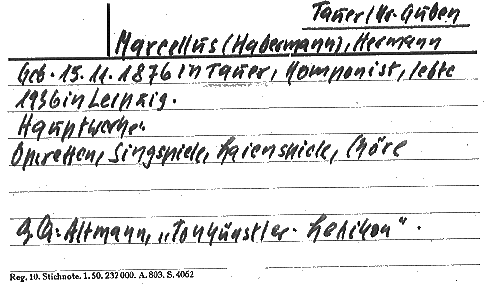 Tauer/Kr. Guben
Marcellus (Habermann), Hermann
Geb. 15. 11. 1876 in Tauer, Komponist, lebte
1936 in Leipzig.
Hauptwerke.
Operetten, Singspiele, Laienspiele, Chöre
Q. Qu. Altmann, „Tonkünstler-Lexikon“.
Reg. 10. Stichnote. 1. 50. 232000. A. 803. S. 4062